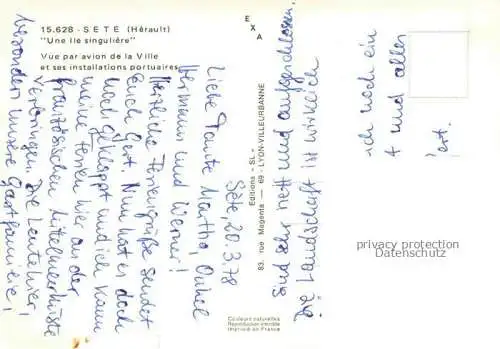 15.628 - SETE (Hérault)
"Une Ile singulière"
Vue par avion de la Ville
et ses installations portuaires
EXA
Editions "SL"
83, rue Magenta — 69 - LYON-VILLEURBANNE
Couleurs naturelles
Reproduction interdite
Imprimé en France
Sète, 20.3.78
Liebe Tante Martha, Onkel
Hermann und Werner!
Herzliche Feriengrüße sendet
Euch Gert. Nun hat es doch
noch geklappt und ich kann
meine Ferien hier an der
französischen Mittelmeerküste
verbringen. Die Leute hier,
besonders unsere Gastfamilie,
sind sehr nett und aufgeschlossen.
Die Landschaft ist wirklich
privacy protection
Datenschutz
ich noch ein
und alles